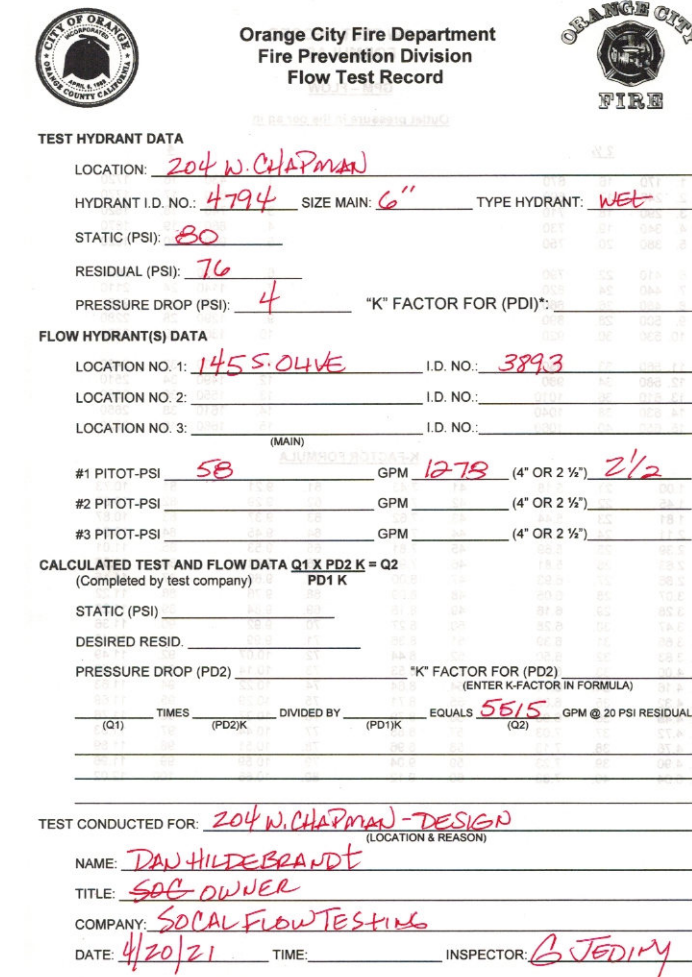 CITY OF ORANGE
INCORPORATED
APRIL 6, 1888
ORANGE COUNTY CALIFORNIA
Orange City Fire Department
Fire Prevention Division
Flow Test Record
ORANGE CITY
FIRE
TEST HYDRANT DATA
LOCATION: 204 W. CHAPMAN
HYDRANT I.D. NO.: 4794 SIZE MAIN: 6" TYPE HYDRANT: WET
STATIC (PSI): 80
RESIDUAL (PSI): 76
PRESSURE DROP (PSI): 4 "K" FACTOR FOR (PDI)*:
FLOW HYDRANT(S) DATA
LOCATION NO. 1: 145 S. OLIVE I.D. NO.: 3893
LOCATION NO. 2: I.D. NO.:
LOCATION NO. 3: I.D. NO.:
(MAIN)
#1 PITOT-PSI 58 GPM 1278 (4" OR 2 ½") 2 1/2
#2 PITOT-PSI GPM (4" OR 2 ½")
#3 PITOT-PSI GPM (4" OR 2 ½")
CALCULATED TEST AND FLOW DATA Q1 X PD2 K = Q2
(Completed by test company) PD1 K
STATIC (PSI)
DESIRED RESID.
PRESSURE DROP (PD2) "K" FACTOR FOR (PD2)
(ENTER K-FACTOR IN FORMULA)
TIMES DIVIDED BY EQUALS 5515 GPM @ 20 PSI RESIDUAL
(Q1) (PD2)K (PD1)K (Q2)
TEST CONDUCTED FOR: 204 W. CHAPMAN - DESIGN
(LOCATION & REASON)
NAME: DAN HILDEBRANDT
TITLE: OWNER
COMPANY: SOCAL FLOW TESTING
DATE: 4/20/21 TIME: INSPECTOR: